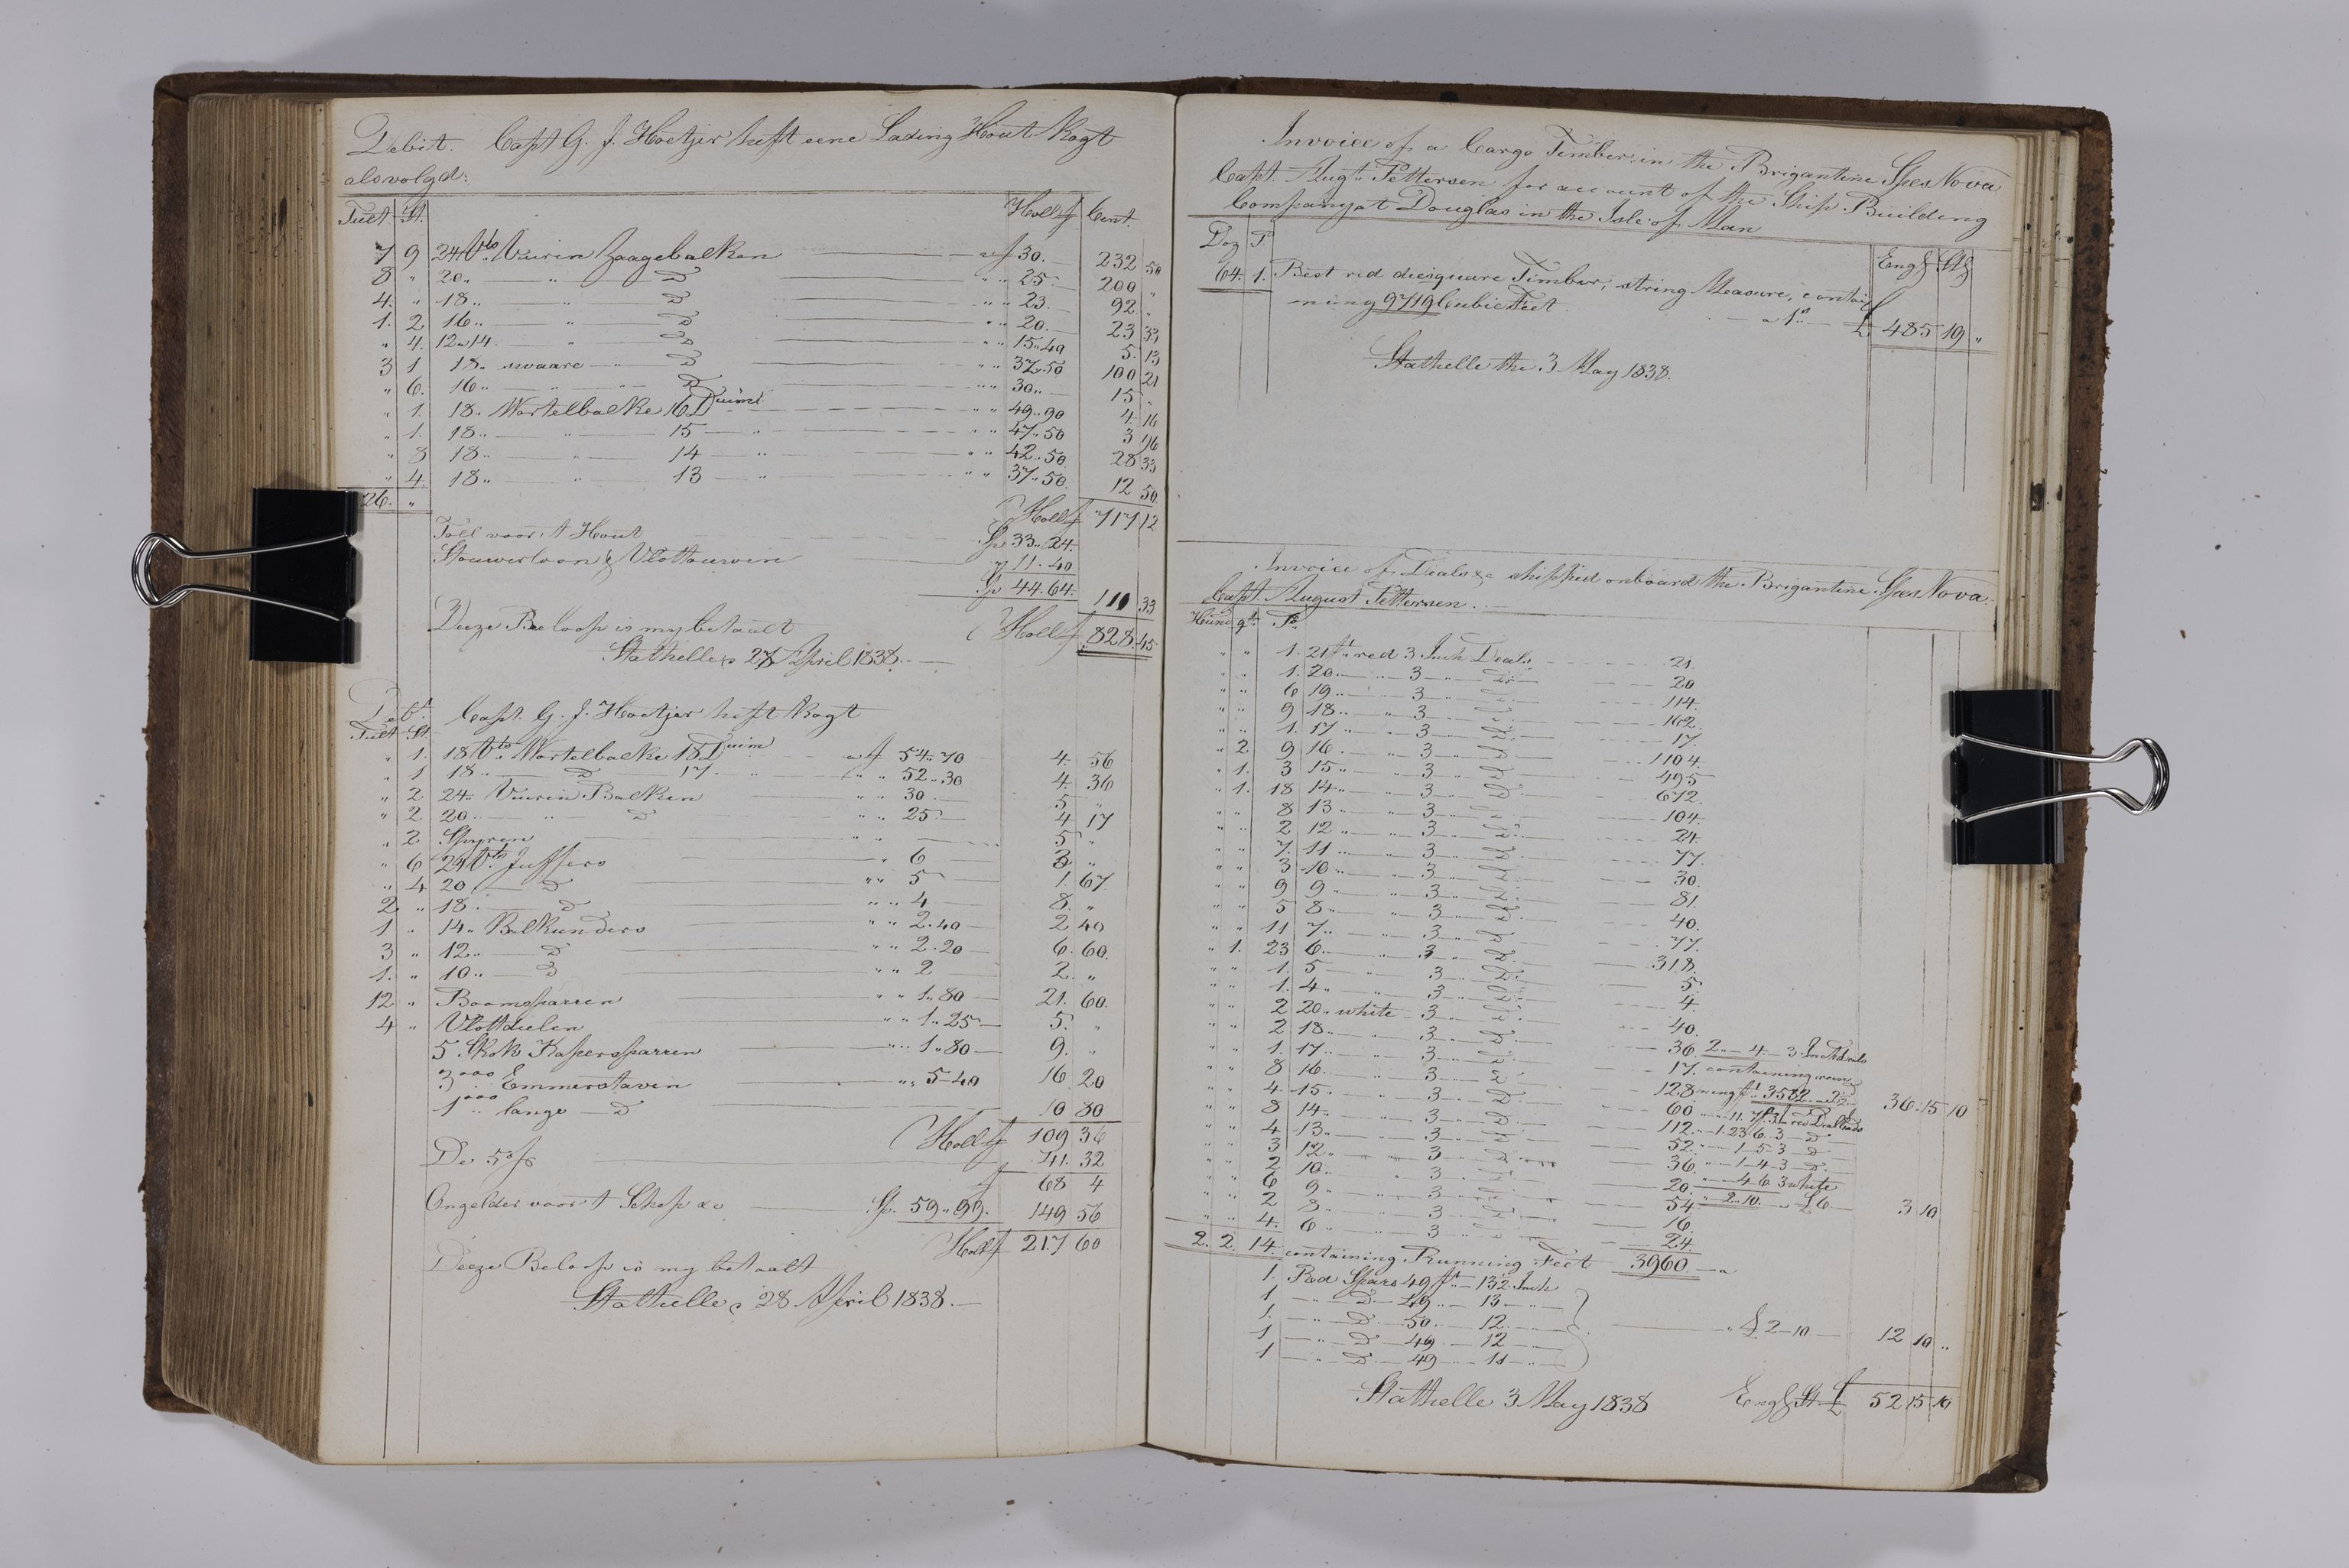 Debit. Capt G. J. Hoetjer heft eene Lading Hout Kogt
als volgd:
Tult St. Holl f Cent.
7 9 24 Vts Vuiren Zaagebalken a f 30. 232 50
8 " 20 " " D " " 25 200 "
4 " 18 " " D " " 23 92 "
1. 2 16 " " D " " 20 23 33
" 4. 12 a 14 " D " " 15.40 5. 13
3 1 18 " swaare " D " " 37.50 100 21
" 6. 16 " " " D " " 30 " 15 "
" 1. 18 " Wortelbalke 16 Duim " " 49.90 4. 16
" 1. 18 " " 15 " " " 47.50 3 96
" 8 18 " " 14 " " " 42.50 28 33
" 4. 18 " " 13 " " " 37.50 12 50
26. " Holl f 717 12
Toll voor 't Hout Sp 33.24.
Stouwerloon & Vlottouwen " 11.40
Sp 44.64. 110 33
Deeze Beloop is my betaalt Holl f 828.45
Stathelle 27 April 1838.
Debt. Capt. G. J. Hoetjer heft Kogt
Tult St.
" 1. 18 Vts Wortelbalke 18 Duim a f 54.70 4. 56
" 1 18 " D 17 " " " 52.30 4. 36
" 2 24 " Vuiren Balken " " 30 5 "
" 2 20 " " D " " 25 4 17
" 2 Spyren " " 5 "
" 6 24 Vts Juffers " 6 3 "
" 4 20 " D " " 5 1. 67
2 " 18 " D " " 4 8. "
1 " 14 " Balkunders " " 2.40 2 40
3 " 12 " D " " 2.20 6. 60.
1. " 10 " D " " 2 2. "
12 " Boomsparren " " 1.80 21. 60.
4 " Vlottdeelen " " 1.25 5. "
5 Skok Kapersparren " " 1.80 9. "
3000 Emmerstaven " " 5.40 16 20
1000 lange D 10 80
Holl f 109 36
De 5/8 41. 32
f 68 4
Ongelder voor 't Schip &c Sp. 59.99. 149 56
Holl f 217 60
Deeze Beloop is my betaalt
Stathelle 28 April 1838.
Invoice of a Cargo Timber in the Brigantine Spes Nova
Capt. Augt. Pettersen for account of the Ship Building
Company at Douglas in the Isle of Man
Doz P. Engl Stg
64. 1. Best red diesquare Timber, string Measure, contai
ning 9719 Cubic Feet a 1s £ 485 19 "
Stathelle the 3 May 1838.
Invoice of Deals &c shipped onboard the Brigantine Spes Nova.
Capt. August Pettersen.
Hund qt. Ps.
" " 1. 21 ft red 3 Inch Deals 21.
" " 1. 20 " " 3 " D 20
" " 6 19 " " 3 " D 114.
" " 9 18 " " 3 " D 162.
" " 1. 17 " " 3 " D 17.
" 2 9 16 " " 3 " D 1104.
" 1. 3 15 " " 3 " D 495
" 1. 18 14 " " 3 " D 672.
" " 8 13 " " 3 " D 104.
" " 2 12 " " 3 " D 24.
" " 7. 11 " " 3 " D 77.
" " 3 10 " " 3 " D 30.
" " 9 9 " " 3 " D 81.
" " 5 8 " " 3 " D 40.
" " 11 7 " " 3 " D 77.
" 1. 23 6 " " 3 " D 318.
" " 1. 5 " " 3 " D 5.
" " 1. 4 " " 3 " D 4.
" " 2 20 " white 3 " D 40.
" " 2 18 " " 3 " D 36. 2 " 4 3 Inch Deals
" " 1. 17 " " 3 " D 17. containing run
" " 8 16 " " 3 " D 128 ning ft 3532 36 15 10
" " 4 15 " " 3 " D 60 " " 11 7 ft 3 In red Dealends
" " 8 14 " " 3 " D 112. " 1. 23 6 3 D
" " 4 13 " " 3 " D 52 " " 1 5 3 D
" " 3 12 " " 3 " D 36. " " 1 4 3 D
" " 2 10 " " 3 " D 20. " " 4 6 3 white
" " 6 9 " " 3 " D 54 " 2 10. £ 6 3 10
" " 2 8 " " 3 " D 16.
" " 4. 6 " " 3 " D 24.
2. 2. 14. containing Running Feet 3960 a
1. Red Spars 49 ft 13½ Inch
1 " D 49 " 13 "
1. " D 50 " 12 " " £ 2 10 12 10 "
1 " D 49 " 12 "
1 " D 49 " 11 "
Stathelle 3 May 1838 Engl St £ 52 15 10